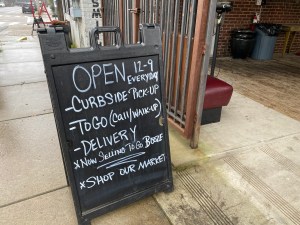 OPEN 12-9
EVERYDAY
-CURBSIDE PICK-UP
-TOGO (CALL/WALK-UP)
-DELIVERY
*NOW SELLING TO GO BOOZE
*SHOP OUR MARKET